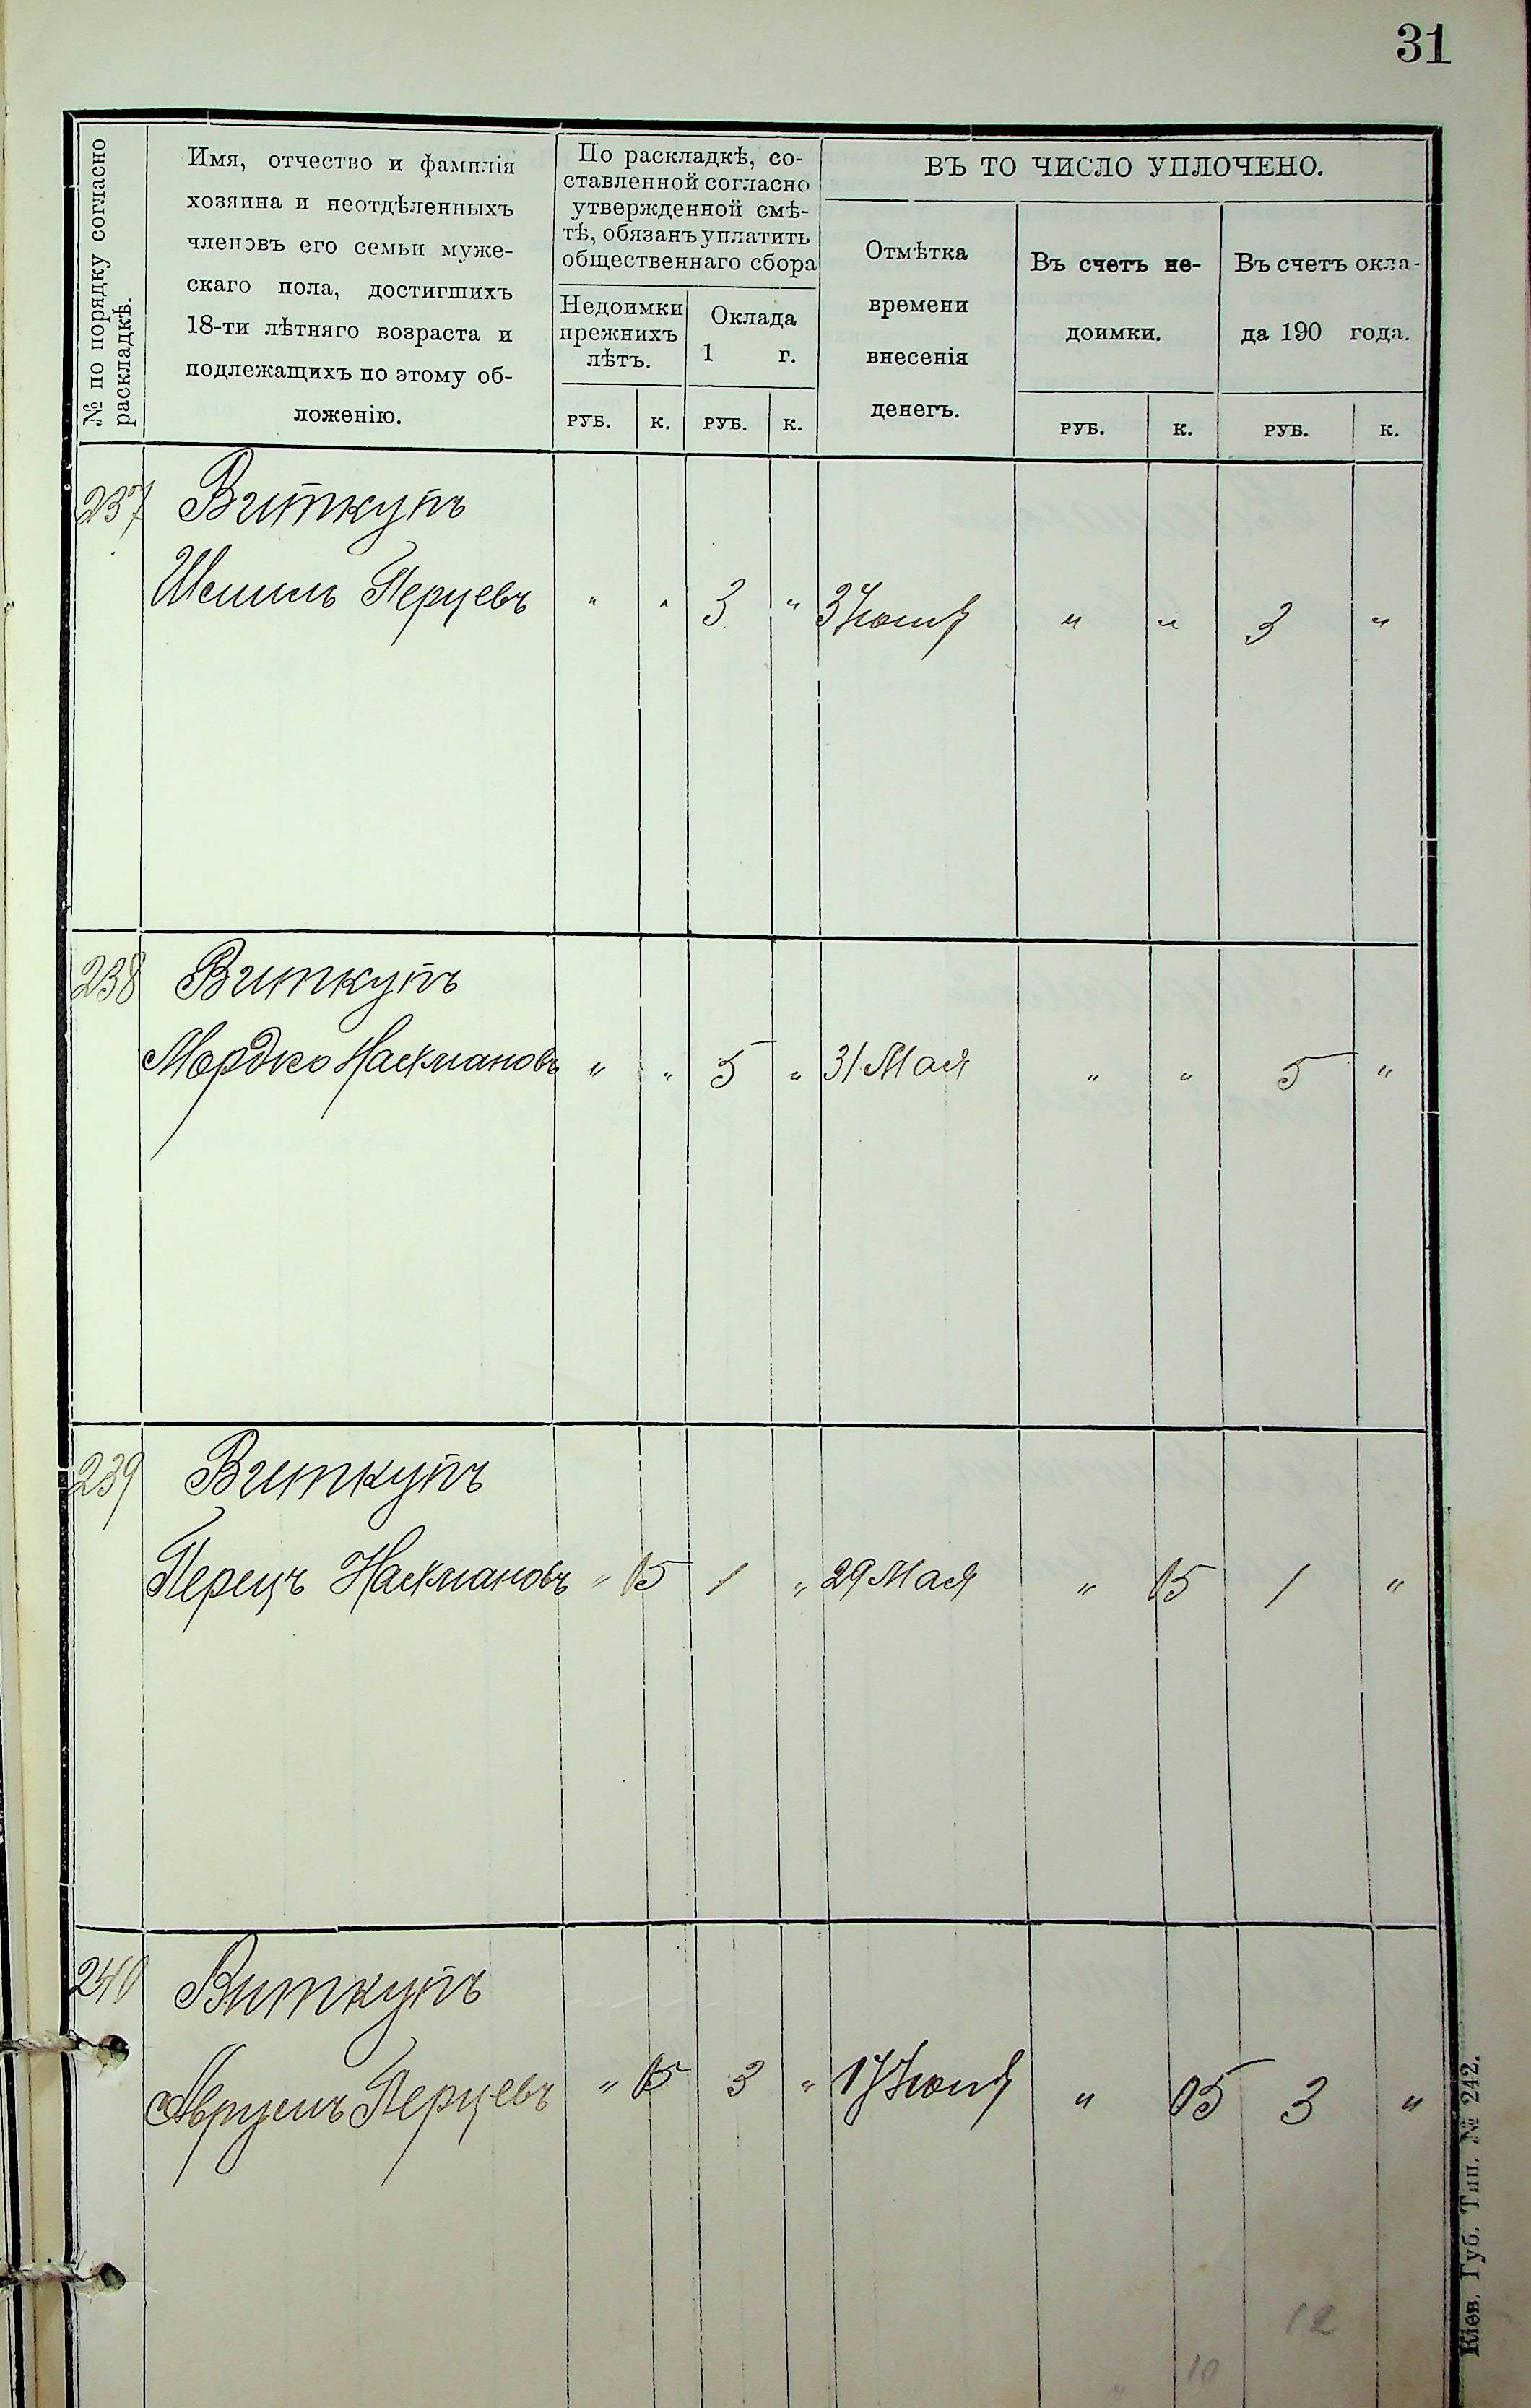 31
№ по порядку согласно
раскладкѣ.
Имя, отчество и фамилія
хозяина и неотдѣленныхъ
членовъ его семьи муже-
скаго пола, достигшихъ
18-ти лѣтняго возраста и
подлежащихъ по этому об-
ложенію.
По раскладкѣ, со-
ставленной согласно
утвержденной смѣ-
тѣ, обязанъ уплатить
общественнаго сбора
Недоимки
прежнихъ
лѣтъ.
Оклада
1 г.
ВЪ ТО ЧИСЛО УПЛОЧЕНО.
Отмѣтка
времени
внесенія
денегъ.
Въ счетъ не-
доимки.
Въ счетъ окла-
да 190 года.
РУБ. К. РУБ. К. РУБ. К. РУБ. К.
237 Виткупъ
Шмиль Перцевъ " " 3 " 3 Июня " " 3 "
238 Виткупъ
Мордко Нахмановъ " " 5 " 31 Мая " " 5 "
239 Виткупъ
Перецъ Нахмановъ " 15 1 " 29 Мая " 15 1 "
240 Виткупъ
Аврумъ Перцевъ " 05 3 " 17 Июня " 05 3 "
12
10
Кіев. Губ. Тип. № 242.